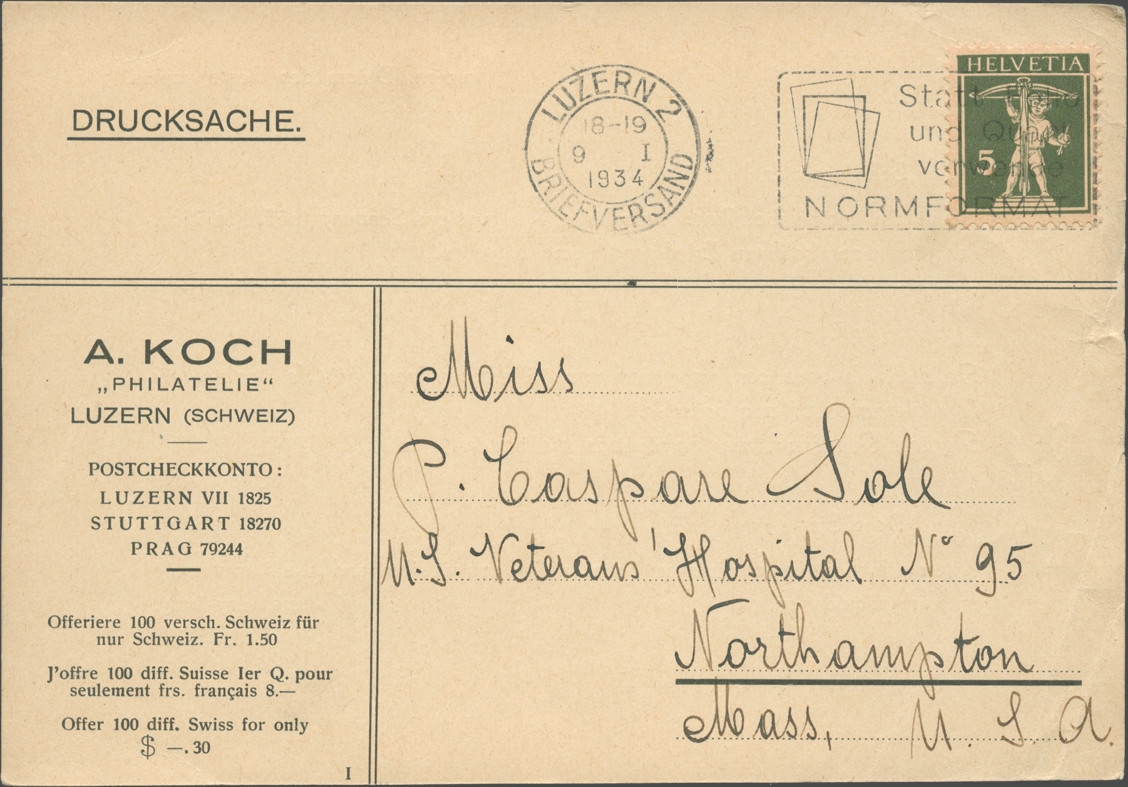 DRUCKSACHE.
LUZERN 2
18-19
9 I
1934
BRIEFVERSAND
Statt
und Quart
verwende
NORMFORMAT
HELVETIA
5
A. KOCH
„PHILATELIE“
LUZERN (SCHWEIZ)
POSTCHECKKONTO:
LUZERN VII 1825
STUTTGART 18270
PRAG 79244
Offeriere 100 versch. Schweiz für
nur Schweiz. Fr. 1.50
J'offre 100 diff. Suisse Ier Q. pour
seulement frs. français 8.—
Offer 100 diff. Swiss for only
$ —.30
I
Miss
P. Caspare Sole
U.S. Veterans' Hospital N° 95
Northampton
Mass, U. S. A.